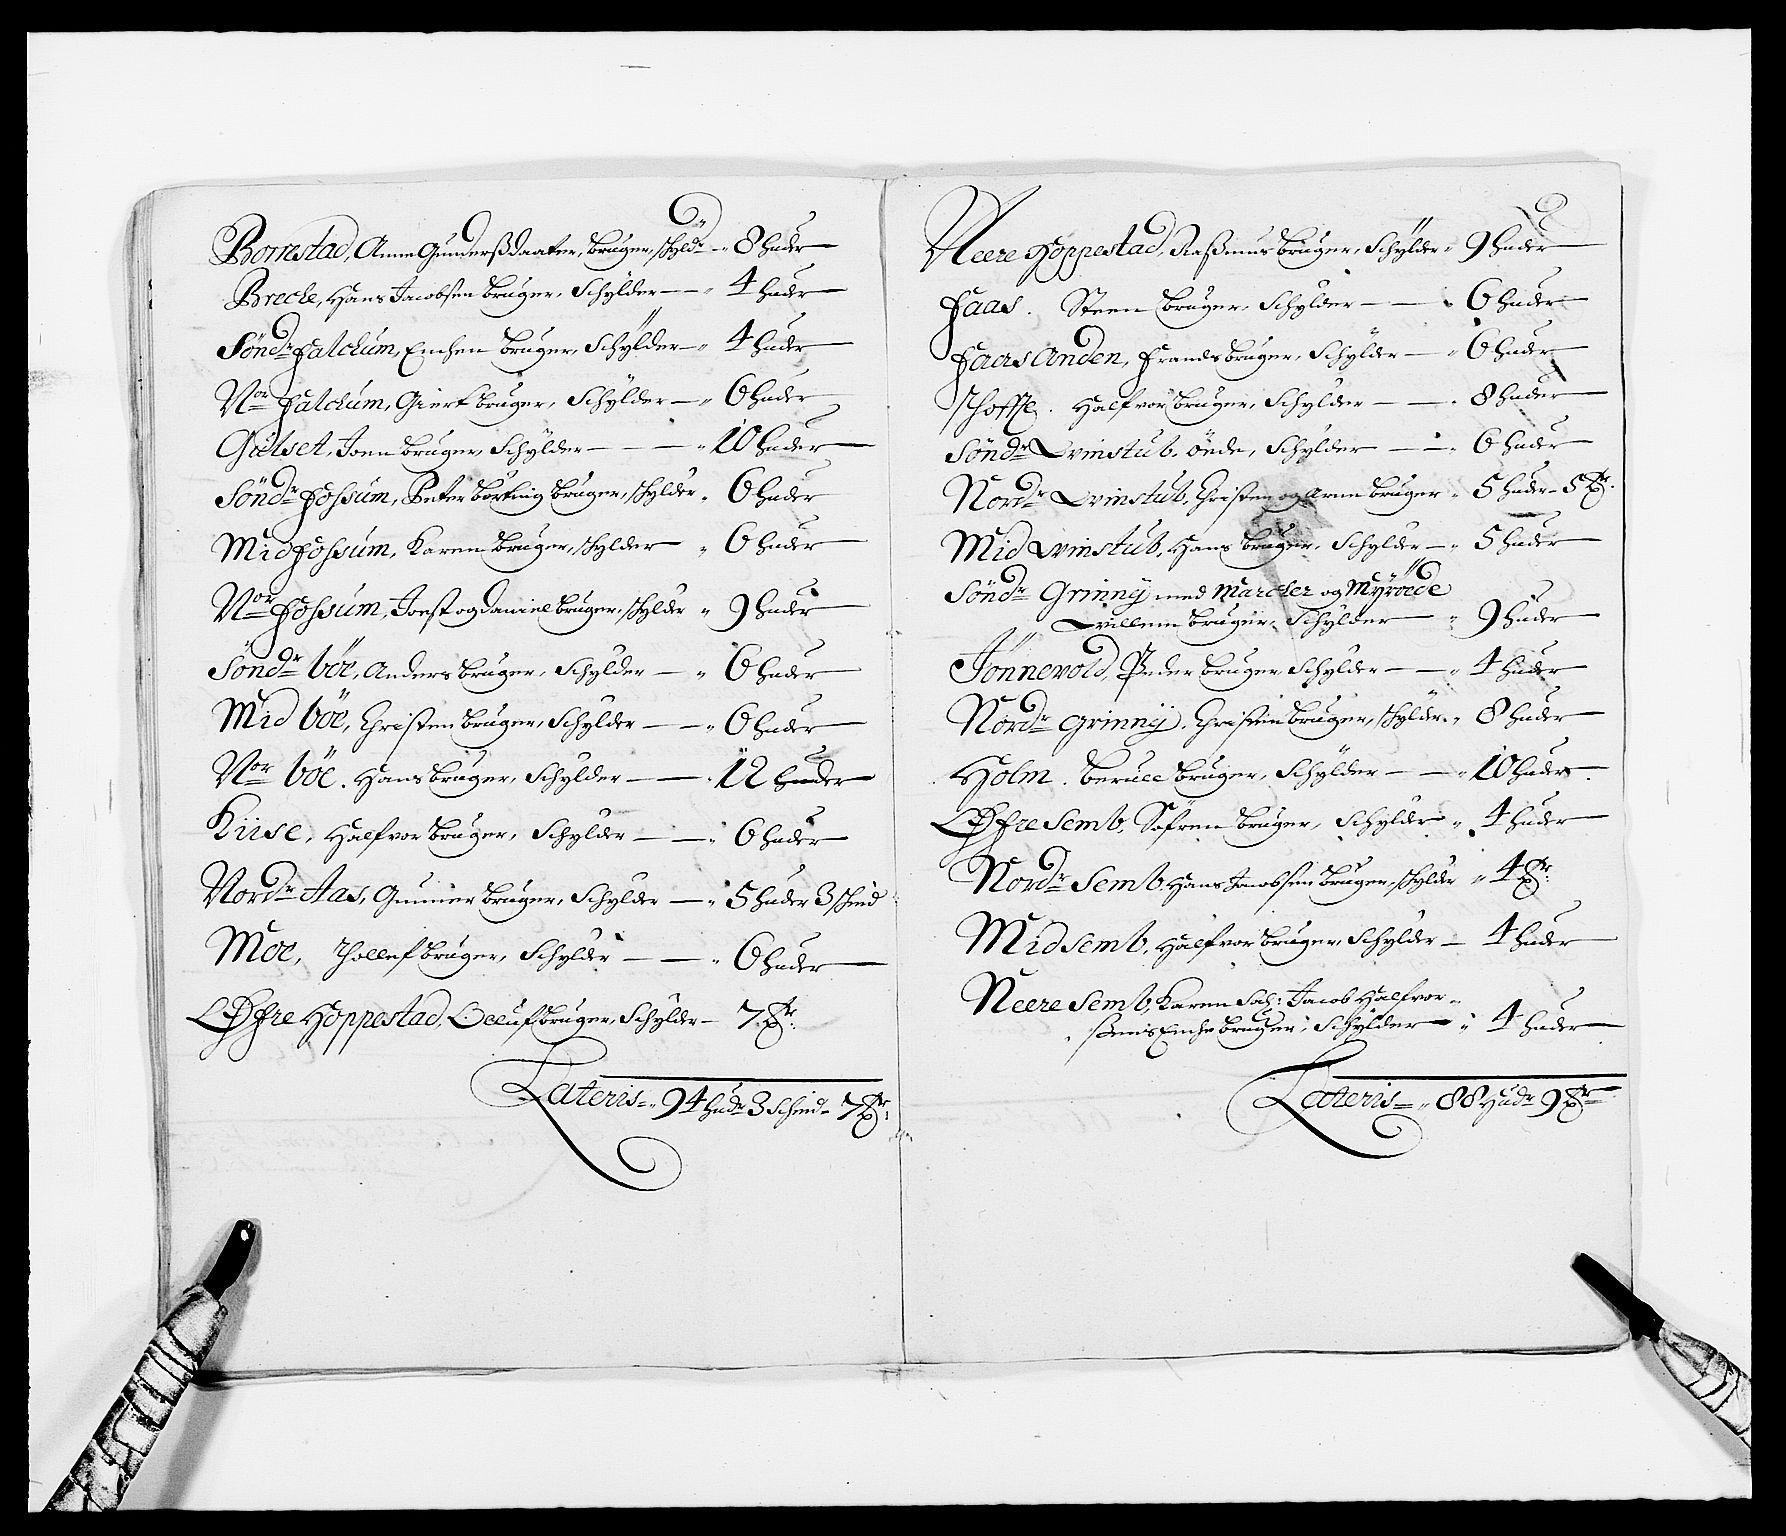 Borrestad, Anne Gunderßdaater, bruger, schyldr - 8 huder
Breche, Hans Jacobsen bruger, Schylder - 4 huder
Söndr Falchum, Enchen bruger, Schÿlder - 4 huder
Nor Falchum, Giert bruger, Schÿlder - 6 huder
Gütset, Joen bruger, Schÿlder - 10 huder
Söndr Fossum, Peter Börting bruger, schylder - 6 huder
Mid Fossum, Karen bruger, schylder - 6 huder
Nor Fossum, Joest og Daniel bruger, schylder - 9 huder
Söndr böe, Anders bruger, Schylder - 6 huder
Mid böe, Christen bruger, Schylder - 6 huder
Nor böe. Hans bruger, Schylder - 12 huder
Kiise, Halfvor bruger, Schylder - 6 huder
Nordr Aas, Gunner bruger, Schylder - 5 huder 3 schind
Moe, Tollef bruger, Schylder - 6 huder
Øfre Hoppestad, Olluf bruger, Schylder - 7 Ɖr:
Lateris - 94 hudr 3 Schind - 7 Ɖr:
Neere Hoppestad, Raßmus bruger, Schÿlder - 9 huder
Faas. Steen bruger, Schylder - 6 huder
Faersanden, Frands bruger, Schÿlder - 6 huder
Halfvor bruger, Schylder - 8 huder
Söndr Qvinstub. öde, Schylder - 6 huder
Nordr Qvinstub, Christen og Arne bruger - 5 huder - 5 Ɖr.
Mid Qvinstub, Hans bruger, Schylder - 5 huder
Söndr Grinny med Marcher og Myröde
Willem bruger, Schylder - 9 huder
Jönnevold, Peder bruger Schylder - 4 huder
Nordr Grinnÿ, Christen bruger, schylder - 8 huder
Holm. beruld bruger, Schÿlder - 10 huder
Øfre Semb, Söfren bruger, Schylder - 4 huder
Nordr Semb, Hans Jacobsen bruger, schyldr - 4 Ɖr:
Mid Semb, Halfvor bruger, Schylder - 4 huder
Neere Semb, Karen Sal: Jacob Halfvor-
sens Enche bruger, Schÿlder - 4 huder
Lateris - 88 Hudr 9 Ɖr